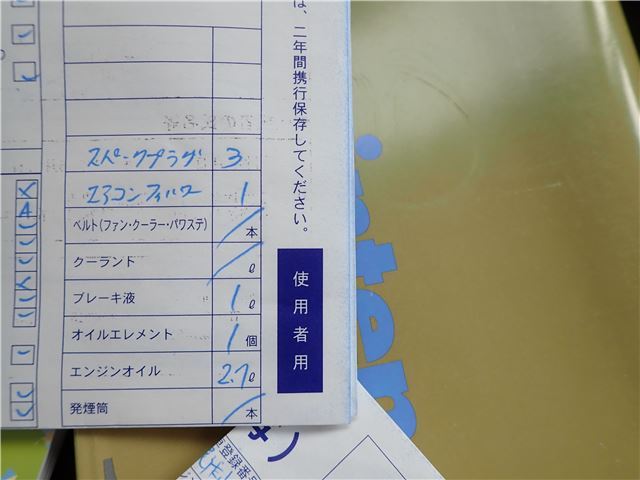 は、二年間携行保存してください。
使用者用
スパークプラグ 3
エアコンフィルター 1
ベルト(ファン・クーラー・パワステ) / 本
クーラント / ℓ
ブレーキ液 1 ℓ
オイルエレメント 1 個
エンジンオイル 2.7 ℓ
発煙筒 / 本
登録番号
inter